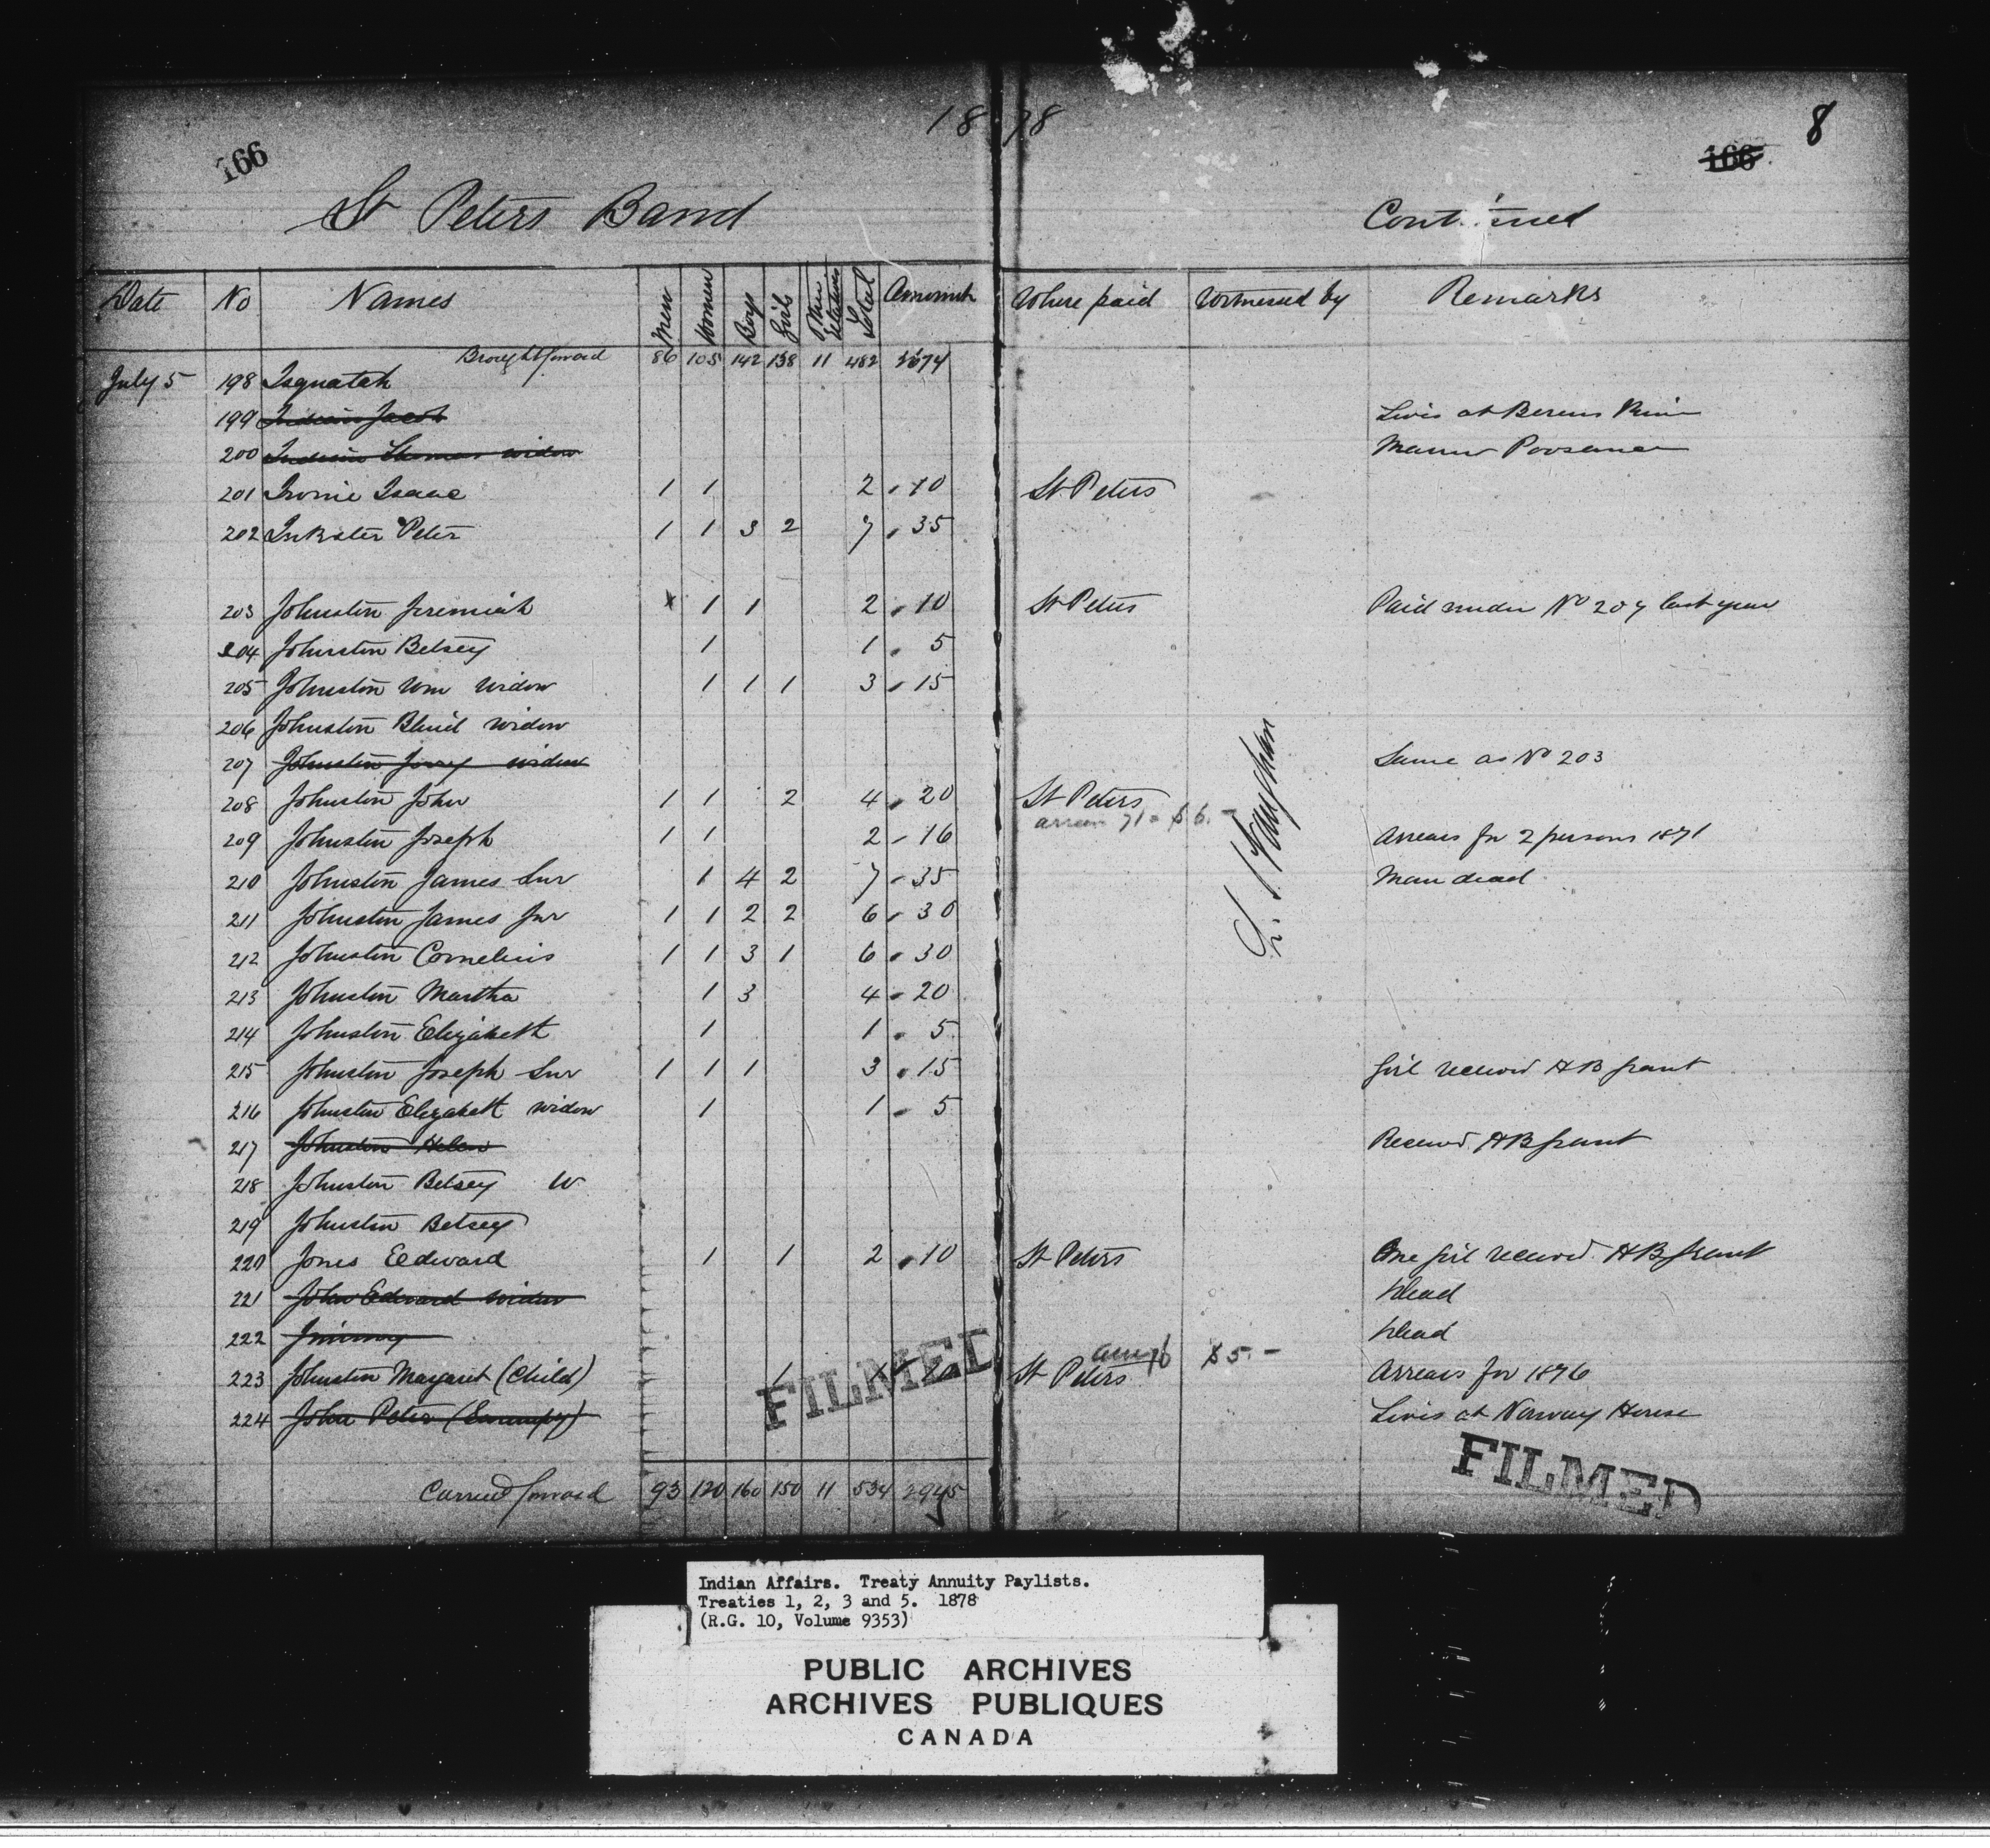 1878
8
166
166
St Peters Band Continued
Date No Names Men Women Boys Girls Other relatives Total Amount Where paid Witnessed by Remarks
Brought forward 86 105 142 138 11 482 2674
July 5 198 Isquatah
199 Indian Jacob Lives at Berens River
200 Indian Thomas widow
201 Irvine Isaac 1 1 2 10 St Peters
202 Inkster Peter 1 1 3 2 7 35
203 Johnston Jeremiah 1 1 2 10 St Peters Paid under No 207 last year
204 Johnston Betsey 1 1 5
205 Johnston Wm widow 1 1 1 3 15
206 Johnston Blind widow
207 Johnston widow Same as No 203
208 Johnston John 1 1 2 4 20 St Peters
arrears 71 = $6.-
209 Johnston Joseph 1 1 2 16 Arrears for 2 persons 1871
210 Johnston James Snr 1 4 2 7 35 Man dead
211 Johnston James Jnr 1 1 2 2 6 30
212 Johnston Cornelius 1 1 3 1 6 30
213 Johnston Martha 1 3 4 20
214 Johnston Elizabeth 1 1 5
215 Johnston Joseph Snr 1 1 1 3 15 Girl received HB grant
216 Johnston Elizabeth widow 1 1 5
217 Johnston Helen Received HB grant
218 Johnston Betsey W
219 Johnston Betsey
220 Jones Edward 1 1 2 10 St Peters One girl received HB grant
221 John Edward widow Dead
222 Jimmy Dead
223 Johnston Margaret (Child) 1 1 10 St Peters $5.- Arrears for 1876
224 John Peter Lives at Norway House
Carried forward 93 120 160 150 11 534 2945
FILMED
FILMED
Indian Affairs. Treaty Annuity Paylists.
Treaties 1, 2, 3 and 5. 1878
(R.G. 10, Volume 9353)
PUBLIC ARCHIVES
ARCHIVES PUBLIQUES
CANADA